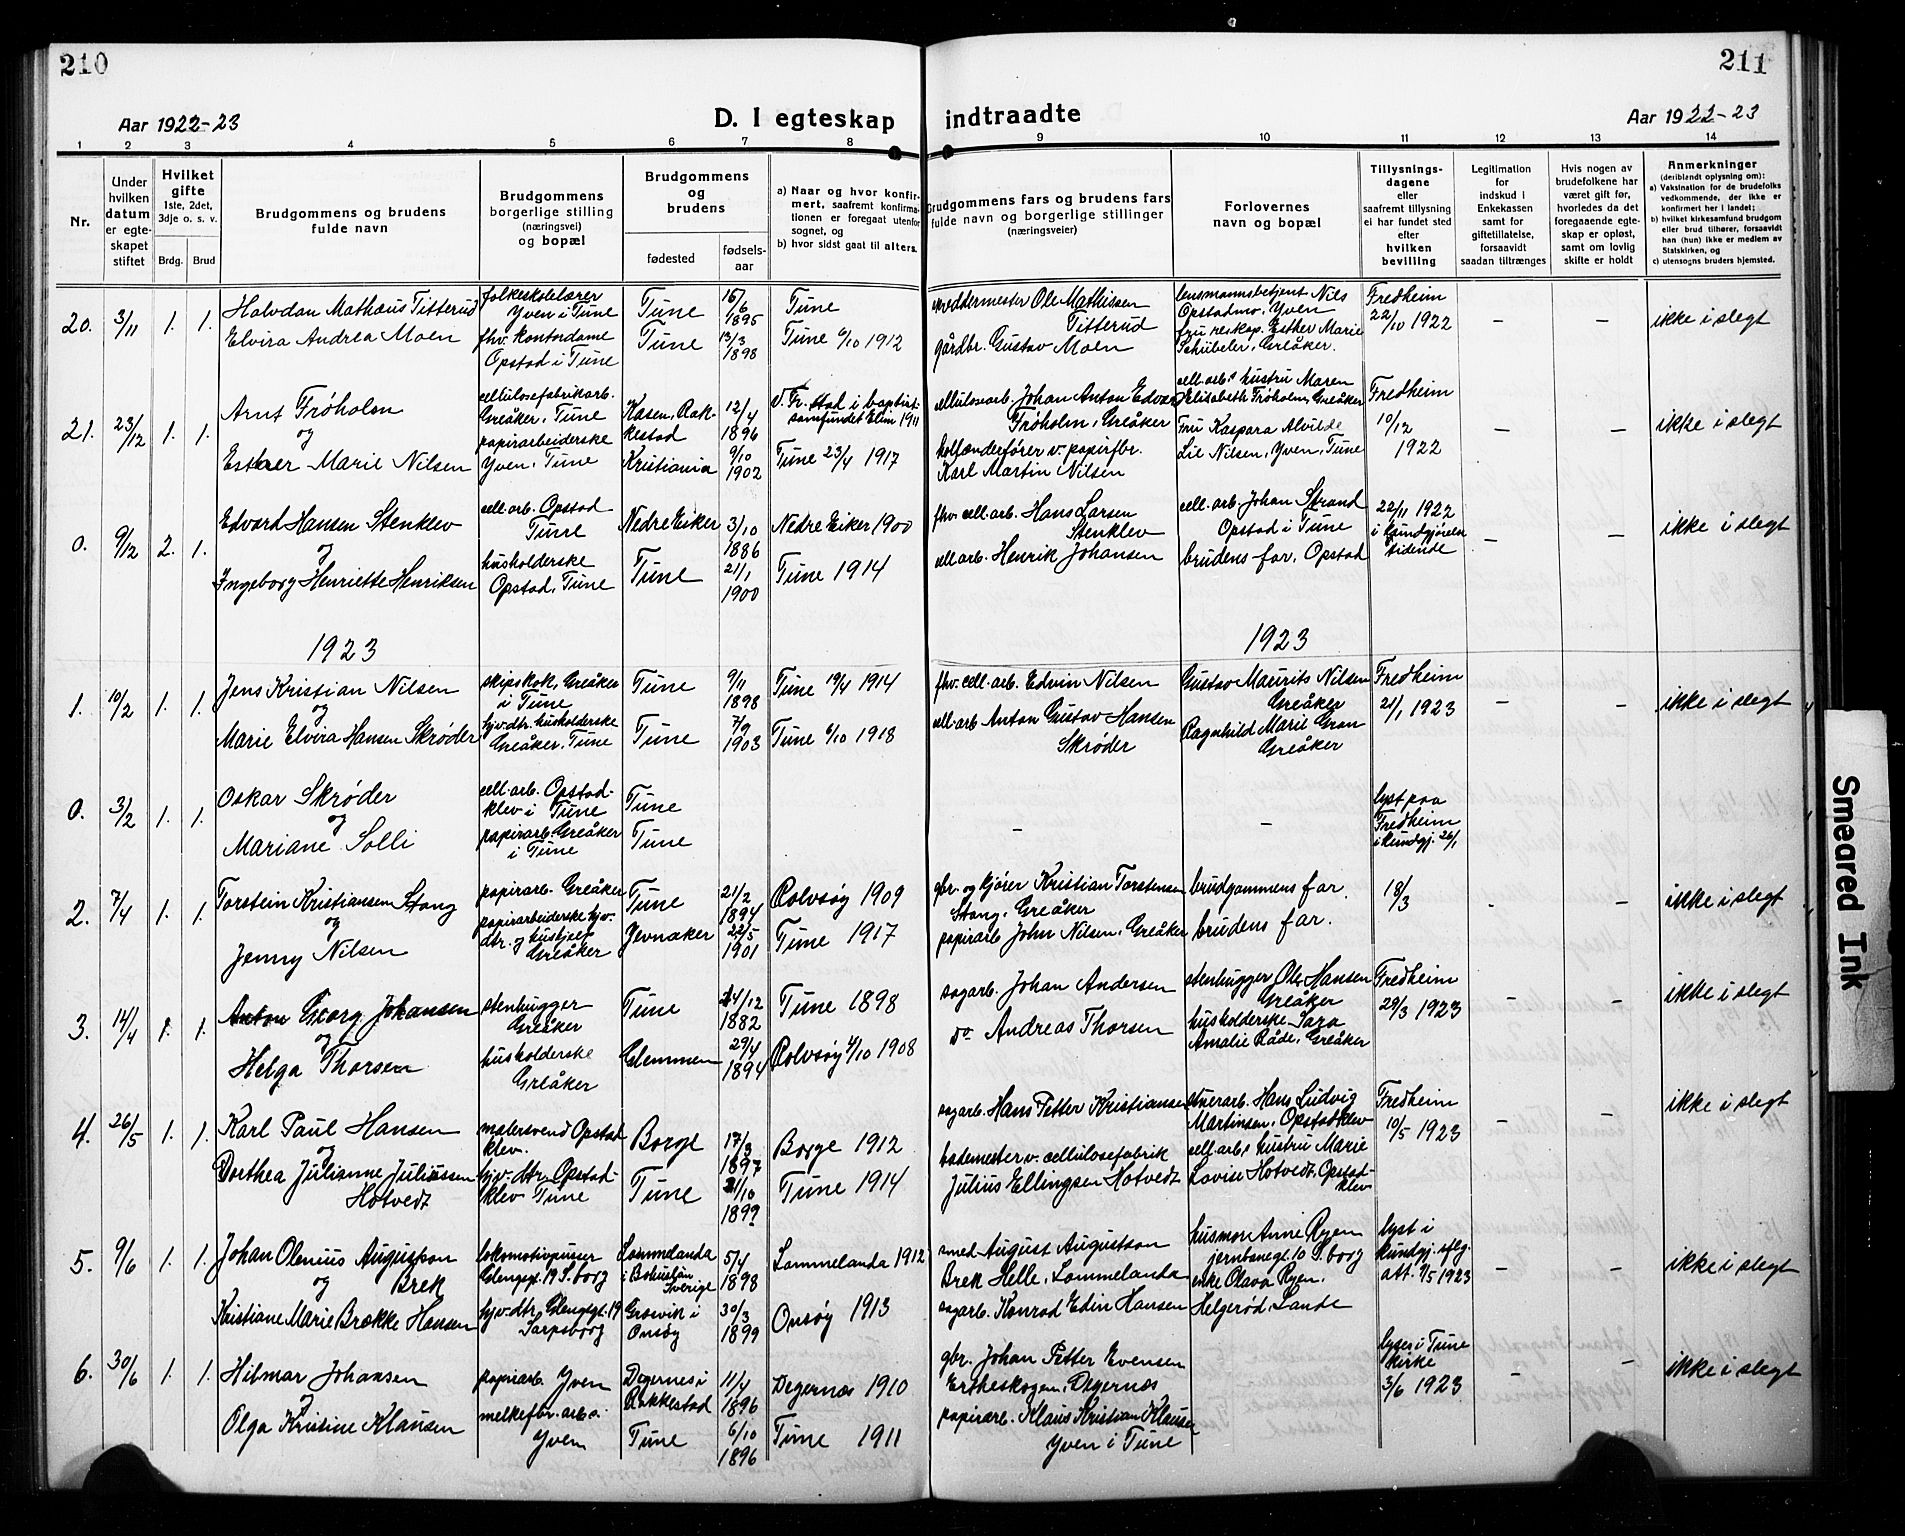 210
211
Aar 1922-23
D. I egteskap indtraadte
Aar 1922-23
1 2 3 4 5 6 7 8 9 10 11 12 13 14
Nr.
Under hvilken datum er egteskapet stiftet
Hvilket gifte 1ste, 2det, 3dje o. s. v.
Brdg. Brud
Brudgommens og brudens fulde navn
Brudgommens borgerlige stilling (næringsvei) og bopæl
Brudgommens og brudens
fødested
fødselsaar
a) Naar og hvor konfirmert, saafremt konfirmationen er foregaat utenfor sognet, og
b) hvor sidst gaat til alters.
Brudgommens fars og brudens fars fulde navn og borgerlige stillinger (næringsveier)
Forlovernes navn og bopæl
Tillysningsdagene eller saafremt tillysning ei har fundet sted efter hvilken bevilling
Legitimation for indskud i Enkekassen samt for giftetillatelse, forsaavidt saadan tiltrænges
Hvis nogen av brudefolkene har været gift før, hvorledes da det foregaaende egteskap er opløst, samt om lovlig skifte er holdt
Anmerkninger (deriblandt oplysning om):
a) Vaksination for de brudefolks vedkommende, der ikke er konfirmert her i landet;
b) hvilket kirkesamfund brudgom eller brud tilhører, forsaavidt han (hun) ikke er medlem av Statskirken, og
c) utensogns bruders hjemsted.
20. 3/11 1. 1.
Halvdan Mathæus Titterud
Elvira Andrea Moen
folkeskolelærer
Yven i Tune
fhv. kontordame
Opstad i Tune
Tune 16/6 1895 Tune
Tune 13/3 1898 Tune 6/10 1912
Ole Mathissen
Titterud
gårdbr. Gustav Moen
lensmannsbetjent Nils
Opstadmo, Yven
fru reskap. Esther Marie
Schübeler, Greåker.
Fredheim
22/10 1922
– –
ikke i slegt
21. 23/12 1. 1.
Arnt Trøholm
og
Esther Marie Nilsen
cellulosefabrikarb.
Greåker, Tune
papirarbeiderske
Yven, Tune
Kasen, Rakkestad 12/4 1896
Kristiania 9/10 1902
v. Fr. stad i baptistsamfundet Elim 1911
Tune 23/4 1917
cellulosearb. Johan Anton Edvard
Trøholm, Greåker
v. papirfbr.
Karl Martin Nilsen
cell. arb.s hustru Maren
Elisabeth Trøholm, Greåker
Fru Kaspara Alvilde
Lie Nilsen, Yven, Tune
Fredheim
10/12
1922
– –
ikke i slegt
0. 9/12 2. 1.
Edvard Hansen Stenklev
og
Ingeborg Henriette Henriksen
cell. arb. Opstad
Tune
husholderske
Opstad, Tune
Nedre Eiker 3/10 1886 Nedre Eiker 1900
Tune 21/1 1900 Tune 1914
fhv. cell. arb. Hans Larsen
Stenklev
cell. arb. Henrik Johansen
cell. arb. Johan Strand
Opstad i Tune
brudens far, Opstad
22/11 1922
i Kundgjørelsestidende
– –
ikke i slegt
1923
1923
1. 10/2 1. 1.
Jens Kristian Nilsen
og
Marie Elvira Hansen Skrøder
skipskok, Greåker
i Tune
hjv. dtr. husholderske
Greåker, Tune
Tune 9/11 1898 Tune 19/4 1914
Tune 7/9 1903 Tune 6/10 1918
fhv. cell. arb. Edvin Nilsen
cell. arb. Anton Gustav Hansen
Skrøder
Gustav Maurits Nilsen
Greåker
Ragnhild Marie Gran
Greåker
Fredheim
21/1 1923
– –
ikke i slegt
0. 3/2 1. 1.
Oskar Skrøder
og
Mariane Solli
cell. arb. Opstadklev i Tune
papirarb. Greåker
i Tune
Tune
Tune
– –
lyst paa
Fredheim
i kundgj. 26/1
2. 7/4 1. 1.
Torstein Kristiansen Stang
og
Jenny Nilsen
papirarb. Greåker
papirarbeiderske hjv.
dtr. og hushjelp
Greåker
Tune 21/2 1894 Rolvsøy 1909
Jevnaker 22/5 1901 Tune 1917
gbr. og kjører Kristian Torstensen
Stang, Greåker
papirarb. John Nilsen, Greåker
brudgommens far.
brudens far.
18/3
– –
ikke i slegt
3. 14/4 1. 1.
Anton Georg Johansen
og
Helga Thorsen
stenhugger
Greåker
husholderske
Greåker
Tune 24/12 1882 Tune 1898
Glemmen 29/4 1894 Rolvsøy 4/10 1908
sagarb. Johan Andersen
do Andreas Thorsen
stenhugger Ole Hansen
Greåker
husholderske Sara
Amalie Råde, Greåker
Fredheim
29/3 1923
– –
ikke i slegt
4. 26/5 1. 1.
Karl Paul Hansen
og
Dorthea Julianne Juliussen
Hotvedt
malersvend Opstadklev.
hjv. dtr. Opstadklev Tune
Borge 17/3 1897 Borge 1912
Tune 2/10 1899 Tune 1914
sagarb. Hans Petter Kristiansen
bademester v. cellulosefabrik
Julius Ellingsen Hotvedt
Hans Ludvig
Martinsen, Opstadklev
cell. arb.s hustru Marie
Lovise Hotvedt, Opstadklev
Fredheim
10/5 1923
– –
ikke i slegt
5. 9/6 1. 1.
Johan Olenius Augustson
og Brek
Kristiane Marie Brække Hansen
lokomotivpusser
Glengsgt. 19 S. borg
hjv. dtr. Glengsgt. 19
Sarpsborg
Lommelanda
i Bohuslän
Sverige 5/4 1898 Lommelanda 1912
Grosvik i
Onsøy 30/3 1899 Onsøy 1913
smed August Augustson
Brek Helle, Lommelanda
sagarb. Konrad Edin Hansen
husmor Anne Ryen
jernbanegt. 10 S. borg
enke Olava Ryen,
Helgerød, Sande
lyst i
kundgj. iflg.
att. 9/5 1923
– –
ikke i slegt
6. 30/6 1. 1.
Hilmar Johansen
og
Olga Kristine Klausen
papirarb. Yven
melkefbr. arb.
Yven
Degernes i
Rakkestad 11/4 1896 Degernæs 1910
Tune 6/10 1896 Tune 1911
gbr. Johan Petter Evensen
Ertheskogen, Degernæs
papirarb. Klaus Kristian Klausen
Yven i Tune
lyses i Tune
kirke
3/6 1923
– –
ikke i slegt
Smeared Ink